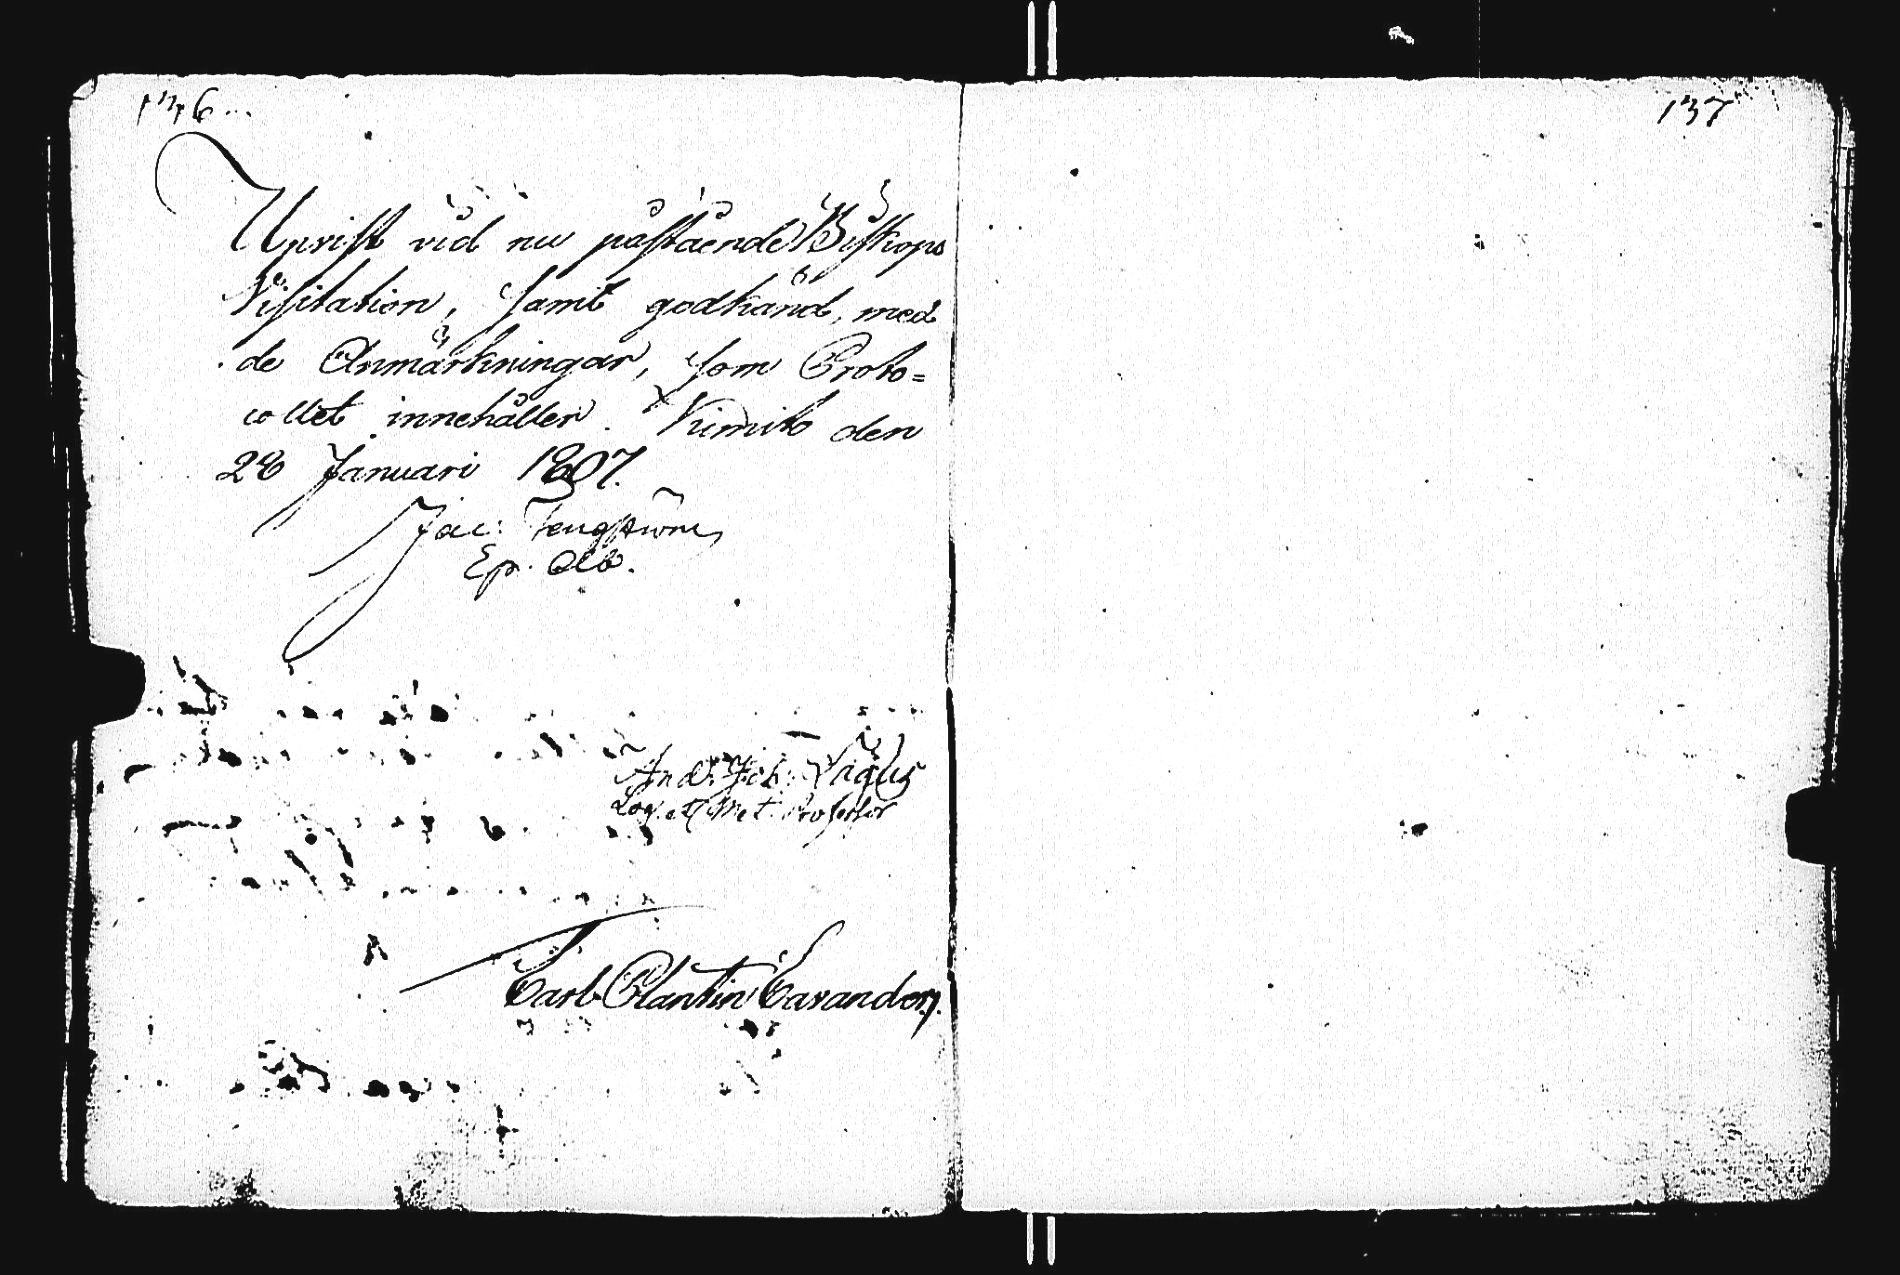 136
Upvist vid nu påstående Biskops
Visitation, samt godkänd, med
de Anmärkningar, som Proto=
collet innehåller. Kimito den
28 Januari 1807.
Jac: Tengström
Ep. Ab.
And: Joh: Lagus
Log. et Met. Professor
Carl Plantin Cavander
137